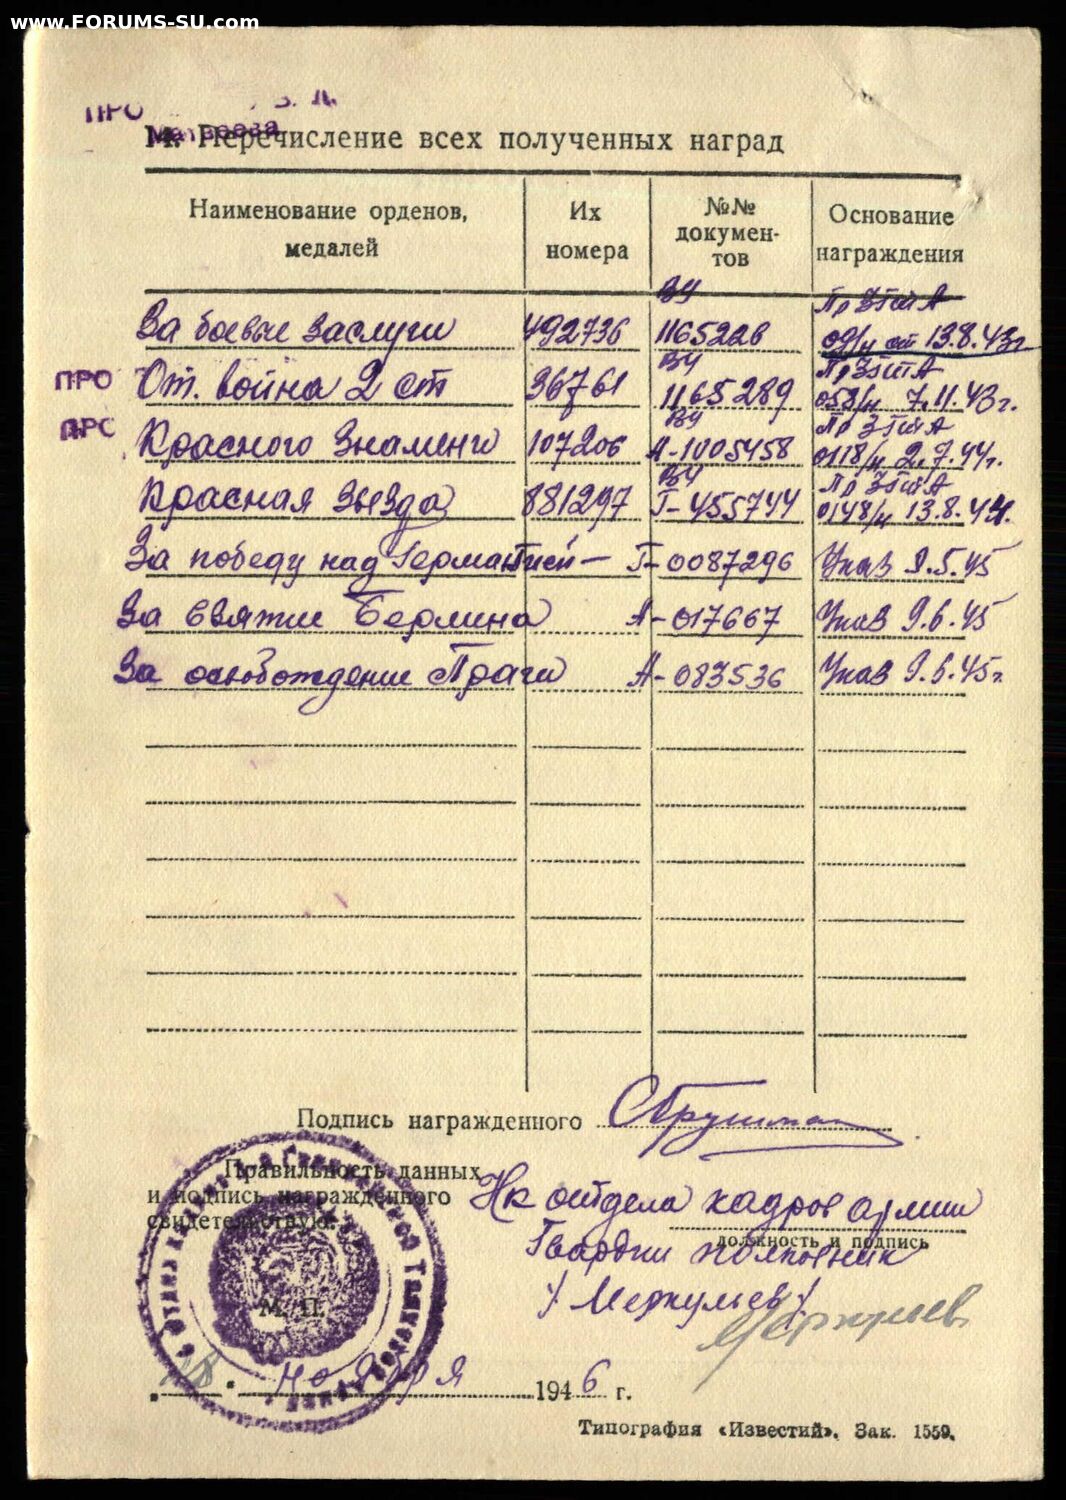 www.FORUMS-SU.com
ПРО
14. Перечисление всех полученных наград
Наименование орденов, медалей
Их номера
№№ докумен-тов
Основание награждения
За боевые заслуги 492736 ВУ 1165226 Пр 3 Гв т А 091/н от 13.8.43г
ПРО От. война 2 ст 36761 ВУ 1165289 Пр 3 Гв т А 058/н 7.11.43г.
Красного Знамени 107206 ВУ А-1005458 Пр 3 Гв т А 0118/н 2.7.44г.
Красная Звезда 881297 ВУ Г-455744 Пр 3 Гв т А 0148/н 13.8.44.
За победу над Германией — Г-0087296 Указ 9.5.45
За взятие Берлина А-017667 Указ 9.6.45
За освобождение Праги А-083536 Указ 9.6.45г.
Подпись награжденного
Правильность данных
и подпись награжденного
свидетельствую:
Нк отдела кадров армии
должность и подпись
Гвардии полковник
/Меркульев/
М. П.
ноября 1946 г.
Типография «Известий». Зак. 1559.